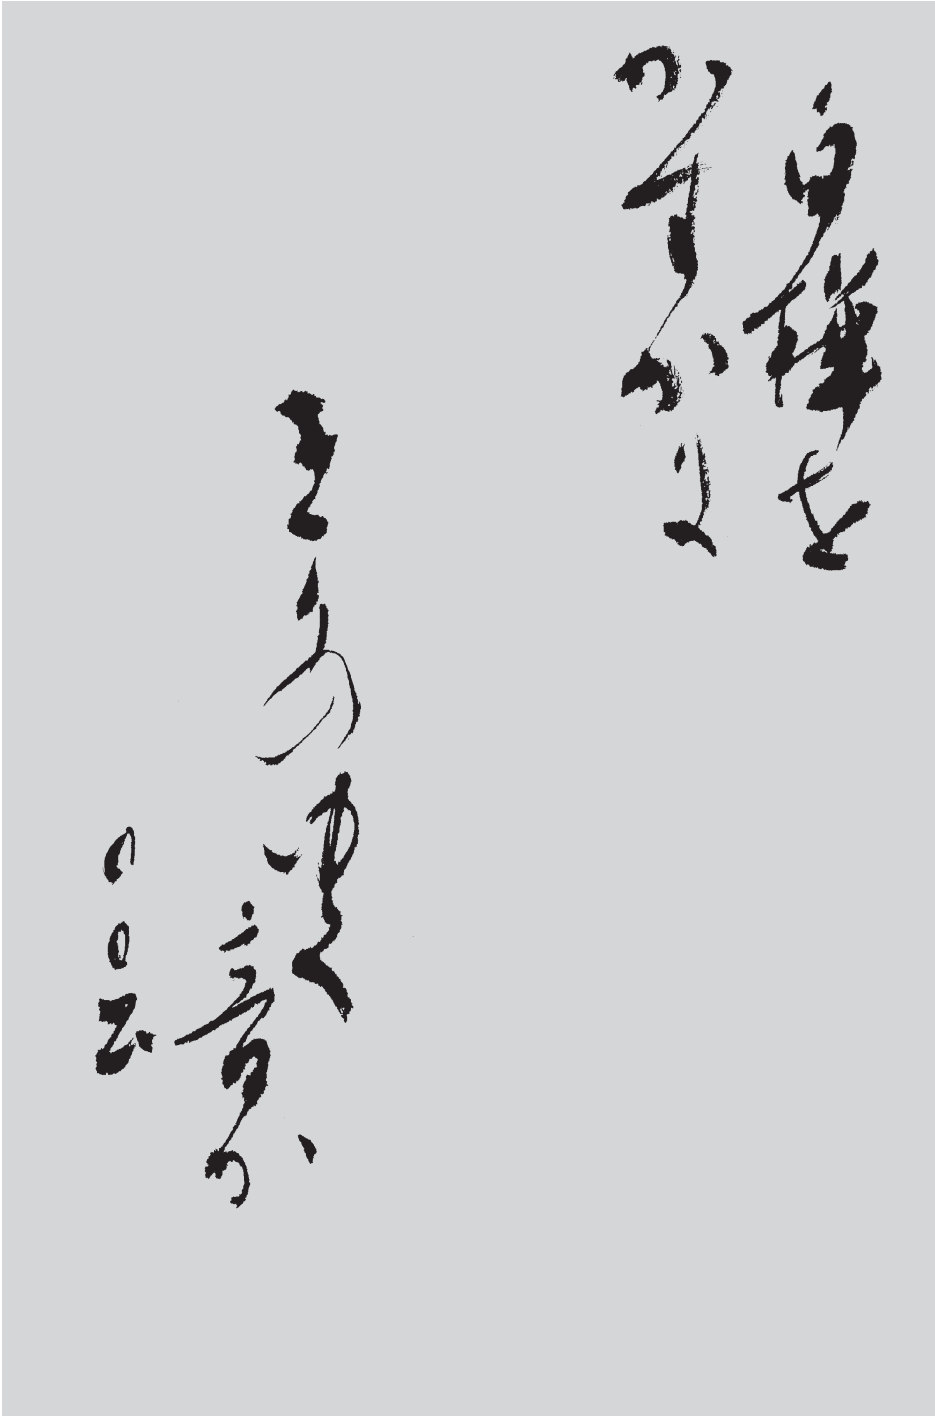 白樺を
かすかに
きりのゆく
音か